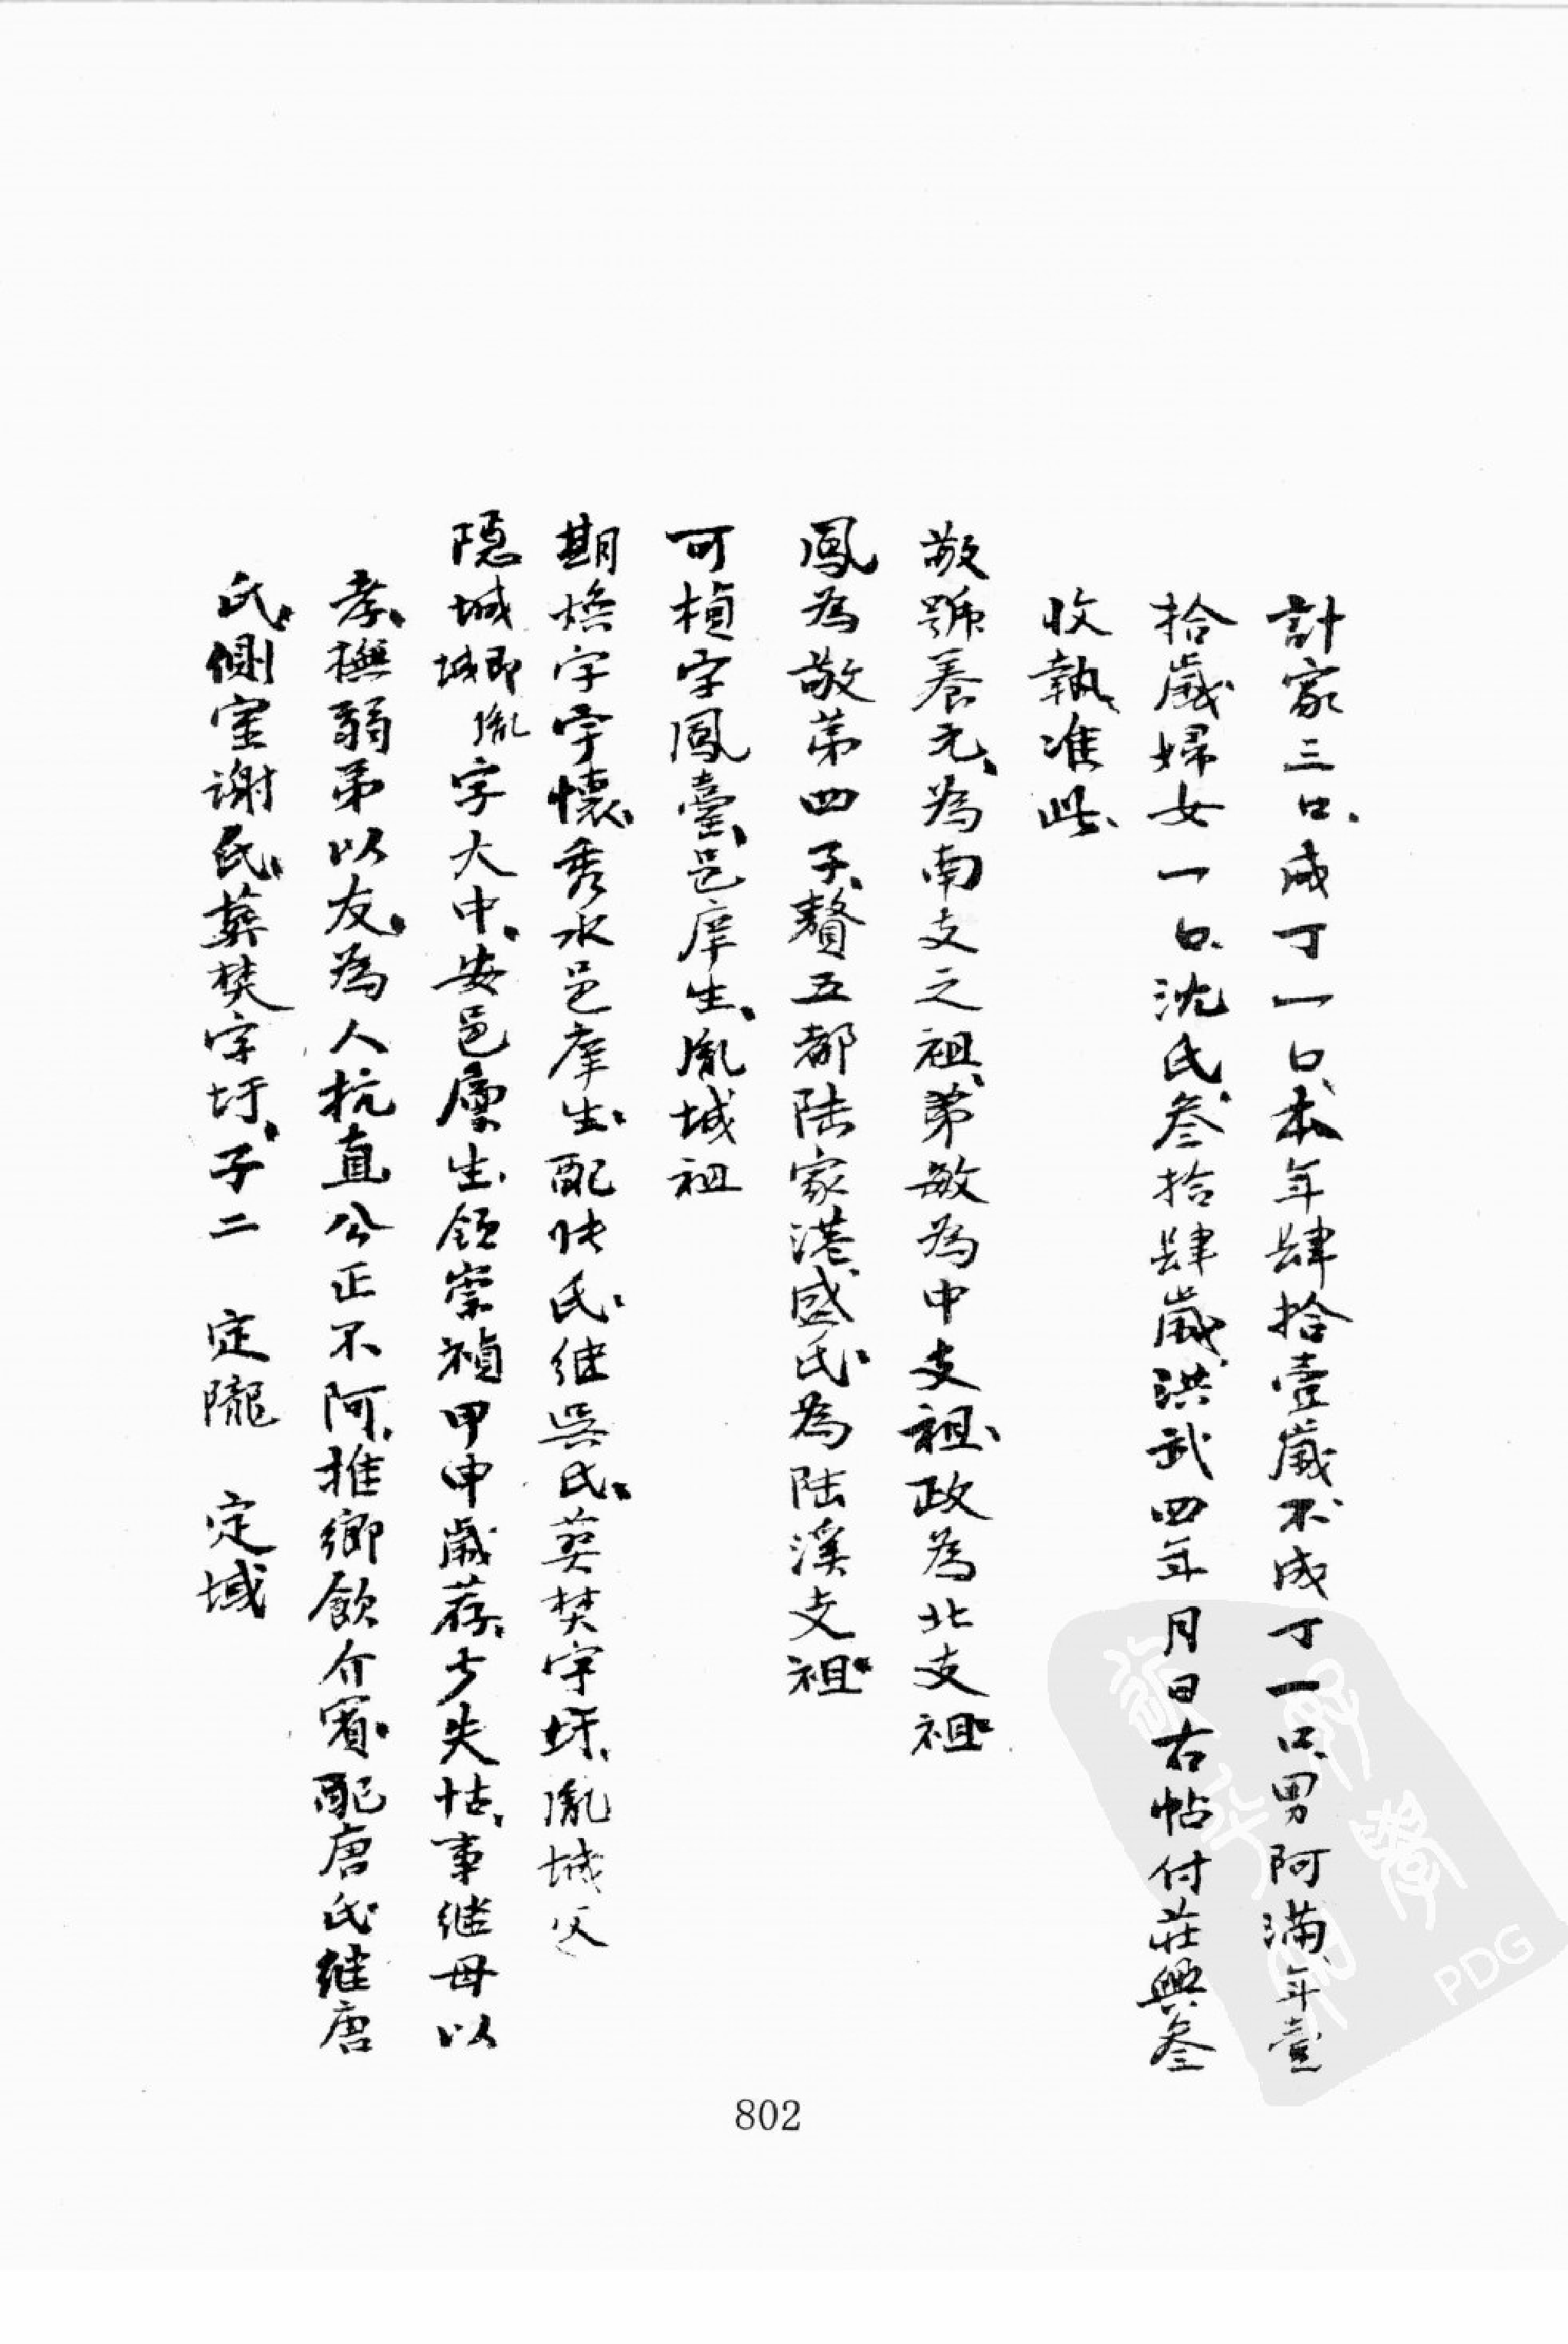 計家三口、成丁一口、本年肆拾壹歲、不成丁一口、男阿滿、年壹
拾歲、婦女一口、沈氏、叁拾肆歲、洪武四年月日右帖付莊興叁
收執、准此、
敬號養元、為南支之祖、弟敏為中支祖、政為北支祖、
鳳為敬第四子、贅五都陸家港盛氏、為陸溪支祖、
可楨字鳳臺、邑庠生、胤城祖
期煥字宇懷、秀水邑庠生、配張氏、继吳氏、葬焚字圩、胤城父
隱城城即胤字大中、安邑廩生、領崇禎甲申歲荐、少失怙、事继母以
孝、撫弱弟以友、為人抗直公正不阿、推鄉飲介賓、配唐氏继唐
氏、側室謝氏、葬焚字圩、子二 定隴 定域
802
PDG